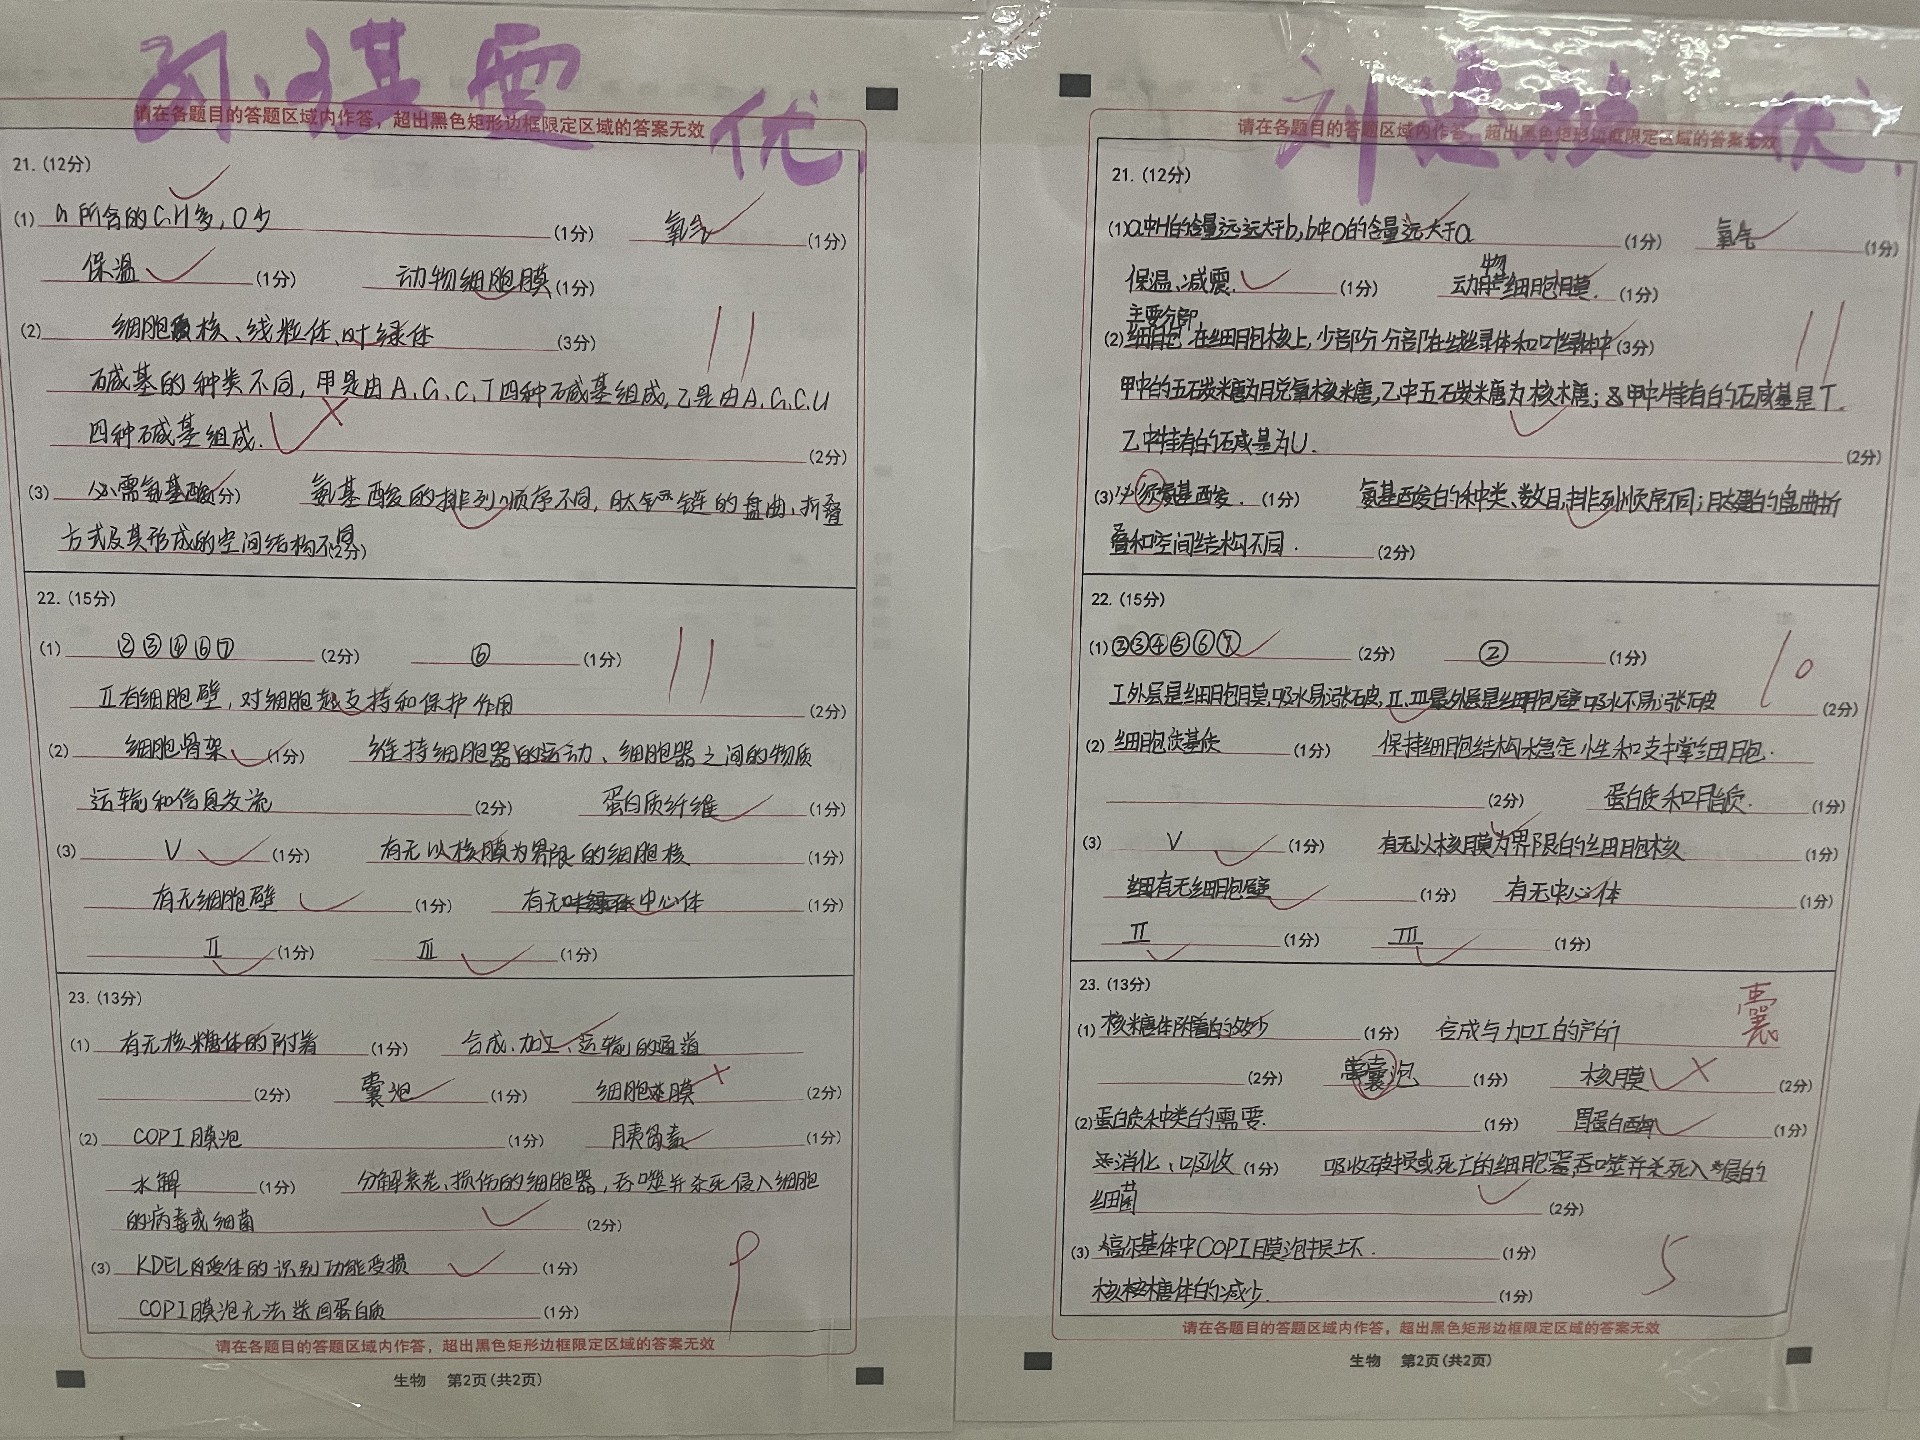 优
请在各题目的答题区域内作答，超出黑色矩形边框限定区域的答案无效
21.(12分)
(1) a所含的C,H多,O少 (1分) 氧气 (1分)
保温 (1分) 动物细胞膜 (1分)
(2) 细胞核、线粒体、叶绿体 (3分)
11
碱基的种类不同,甲是由A,G,C,T四种碱基组成,乙是由A,G,C,U
四种碱基组成. (2分)
(3) 必需氨基酸 (1分) 氨基酸的排列顺序不同,肽链的盘曲、折叠
方式及其形成的空间结构不同 (2分)
22.(15分)
(1) ②③④⑥⑦ (2分) ⑥ (1分)
11
Ⅱ有细胞壁,对细胞起支持和保护作用 (2分)
(2) 细胞骨架 (1分) 维持细胞器的运动、细胞器之间的物质
运输和信息交流 (2分) 蛋白质纤维 (1分)
(3) V (1分) 有无以核膜为界限的细胞核 (1分)
有无细胞壁 (1分) 有无中心体 (1分)
Ⅱ (1分) Ⅲ (1分)
23.(13分)
(1) 有无核糖体的附着 (1分) 合成、加工、运输的通道
(2分) 囊泡 (1分) 细胞膜 (2分)
(2) COPI膜泡 (1分) 胰岛素 (1分)
水解 (1分) 分解衰老、损伤的细胞器,吞噬并杀死侵入细胞
的病毒或细菌 (2分)
(3) KDEL受体的识别功能受损 (1分)
9
COPI膜泡无法送回蛋白质 (1分)
请在各题目的答题区域内作答，超出黑色矩形边框限定区域的答案无效
生物 第2页(共2页)
刘 优
请在各题目的答题区域内作答，超出黑色矩形边框限定区域的答案无效
21.(12分)
(1) a中H的含量远远大于b,b中O的含量远大于a (1分) 氧气 (1分)
保温、减震. (1分) 动物细胞膜. (1分)
(2) 主要分部在细胞核上,少部分分部在线粒体和叶绿体中 (3分)
11
甲中的五碳糖为脱氧核糖,乙中五碳糖为核糖;甲中特有的碱基是T.
乙中特有的碱基为U. (2分)
(3) 必须氨基酸. (1分) 氨基酸的种类、数目,排列顺序不同;肽链的盘曲折
叠和空间结构不同. (2分)
22.(15分)
(1) ②③④⑤⑥⑦ (2分) ② (1分)
10
Ⅰ外层是细胞膜,吸水易涨破,Ⅱ、Ⅲ最外层是细胞壁吸水不易涨破 (2分)
(2) 细胞质基质 (1分) 保持细胞结构稳定性和支撑细胞.
(2分) 蛋白质和脂质. (1分)
(3) V (1分) 有无以核膜为界限的细胞核 (1分)
有无细胞壁 (1分) 有无中心体 (1分)
Ⅱ (1分) Ⅲ (1分)
23.(13分)
囊
(1) 核糖体附着的多少 (1分) 合成与加工的产所
(2分) 囊泡 (1分) 核膜 (2分)
(2) 蛋白质种类的需要. (1分) 胃蛋白酶 (1分)
消化、吸收 (1分) 吸收破损或死亡的细胞器,吞噬并杀死入侵的
细菌 (2分)
(3) 高尔基体中COPI膜泡损坏. (1分)
5
核糖体的减少. (1分)
请在各题目的答题区域内作答，超出黑色矩形边框限定区域的答案无效
生物 第2页(共2页)